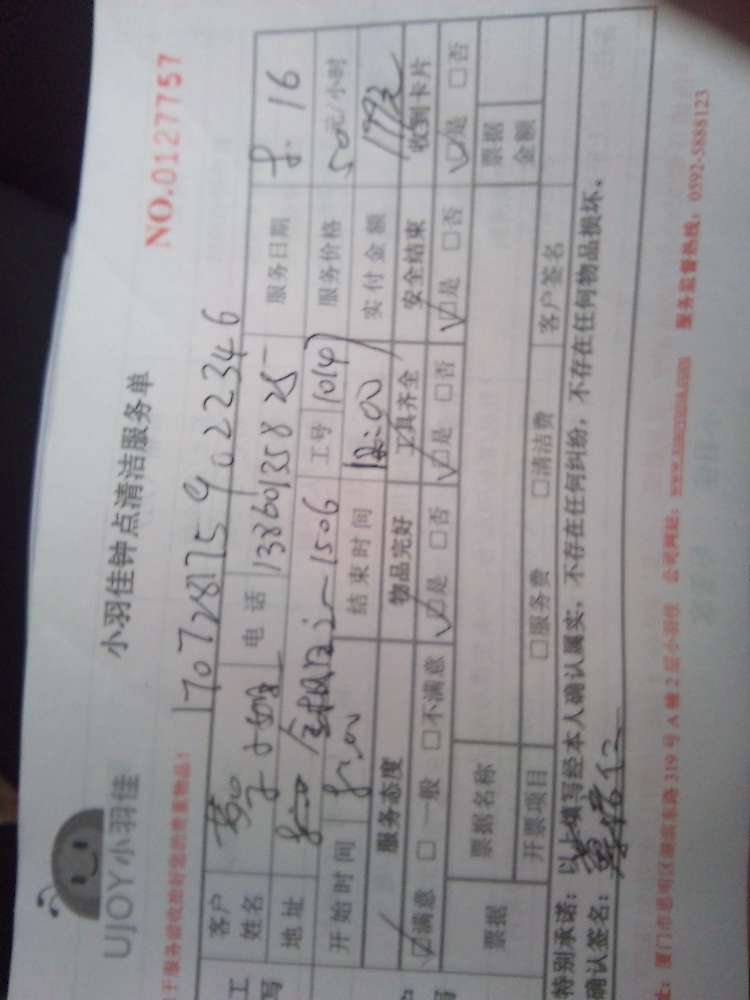 UJOY小羽佳
小羽佳钟点清洁服务单
NO.0127757
于服务前收捡好您的贵重物品!
1707281759022346
客户
姓名
电话
13860135825
服务日期
8.16
地址
1506
工号
10147
服务价格
50元/小时
开始时间
8:00
结束时间
12:00
实付金额
199元
服务态度
物品完好
工具齐全
安全结束
收到卡片
☑满意 □一般 □不满意
☑是 □否
☑是 □否
☑是 □否
☑是 □否
票据
票据名称
票据
金额
开票项目
□服务费 □清洁费
客户签名
特别承诺:以上填写经本人确认属实,不存在任何纠纷,不存在任何物品损坏。
确认签名:
址:厦门市思明区湖滨东路319号A幢2层小羽佳 公司网站: 服务监督热线:0592-5888123